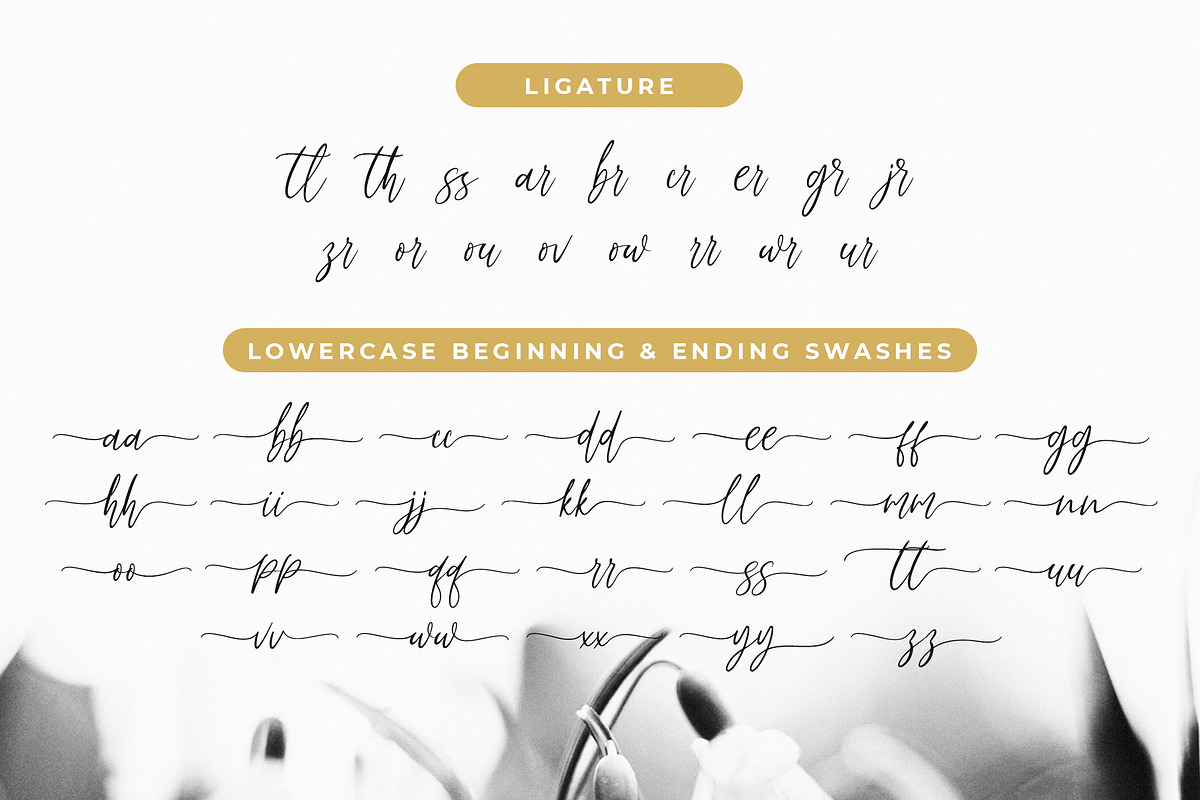 LIGATURE
tl th ss ar br cr er gr jr
zr or ou ov ow rr wr ur
LOWERCASE BEGINNING & ENDING SWASHES
aa bb cc dd ee ff gg
hh ii jj kk ll mm nn
oo pp qq rr ss tt uu
vv ww xx yy zz